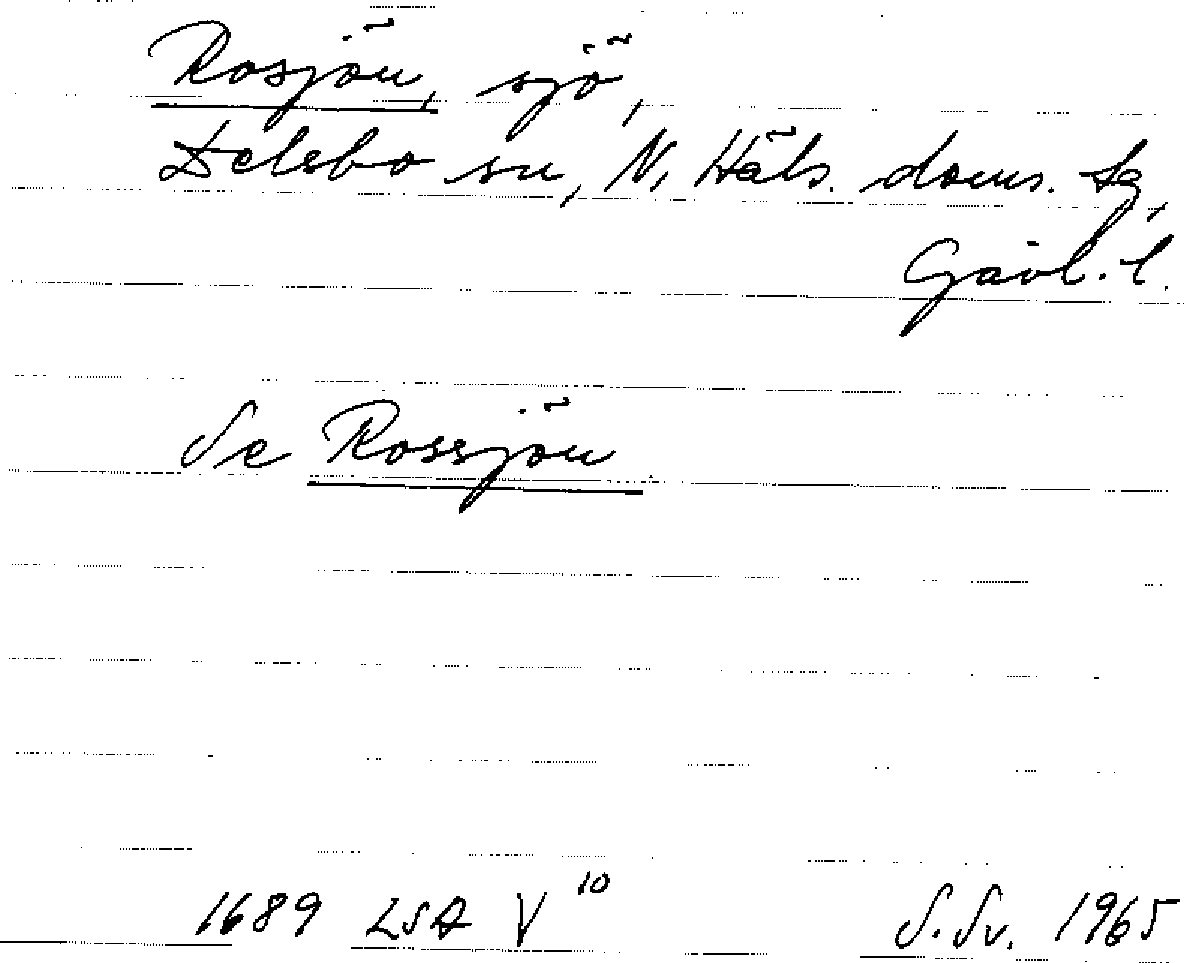 Rosjön, sjö,
Delsbo sn, N. Häls. doms. tg,
Gävl. l.
Se Rossjön
1689 LSA V 10 S. Sv. 1965